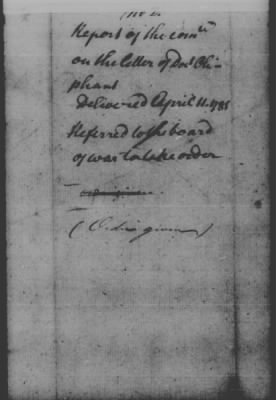 Report of the comtt
on the letter of Doct Oli-
phant
Delivered April 11. 1781
Referred to the board
of war to take order
(Order given)